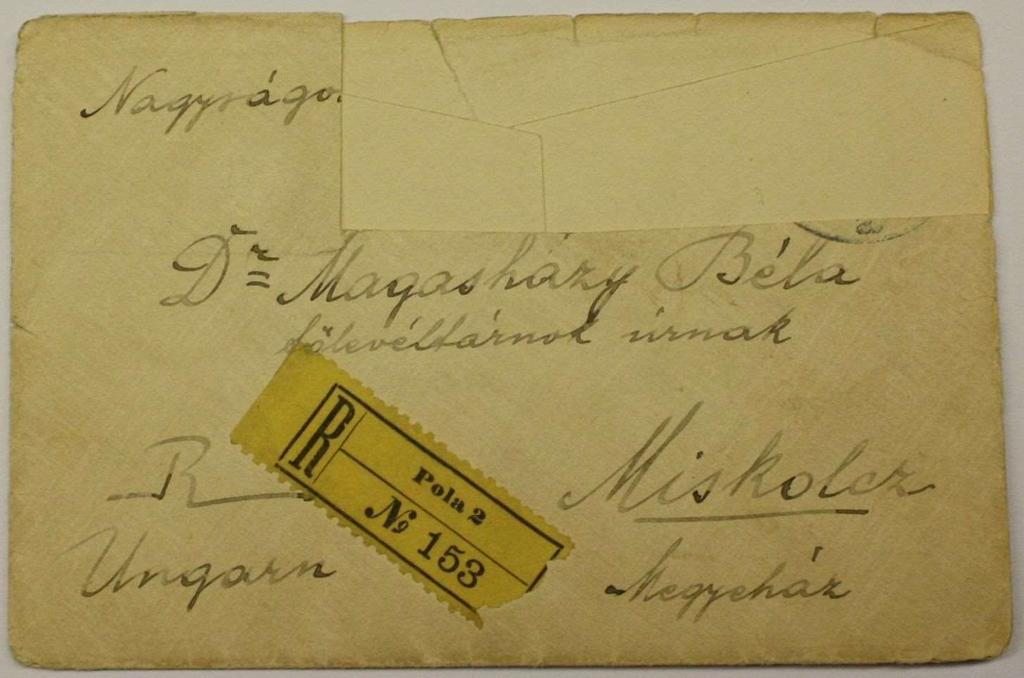 Nagyságo
Dr Magasházy Béla
főlevéltárnok úrnak
R
Pola 2
№ 153
R
Miskolcz
Ungarn
Megyeház